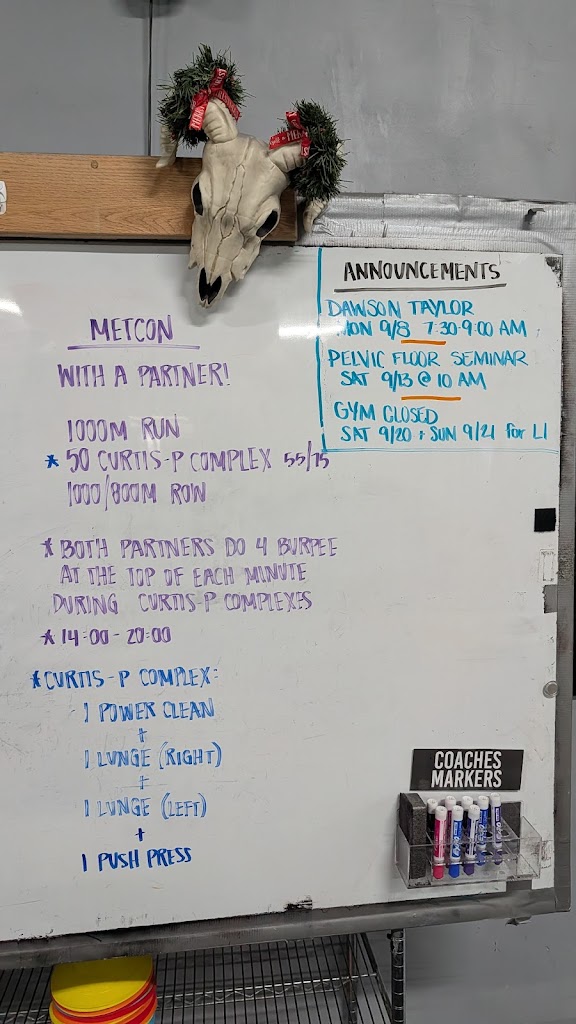 METCON
WITH A PARTNER!
1000M RUN
* 50 CURTIS-P COMPLEX 55/75
1000/800M ROW
* BOTH PARTNERS DO 4 BURPEE
AT THE TOP OF EACH MINUTE
DURING CURTIS-P COMPLEXES
* 14:00 - 20:00
* CURTIS-P COMPLEX:
1 POWER CLEAN
+
1 LUNGE (RIGHT)
+
1 LUNGE (LEFT)
+
1 PUSH PRESS
ANNOUNCEMENTS
DAWSON TAYLOR
MON 9/8 7:30-9:00 AM
PELVIC FLOOR SEMINAR
SAT 9/13 @ 10 AM
GYM CLOSED
SAT 9/20 + SUN 9/21 for L1
COACHES
MARKERS